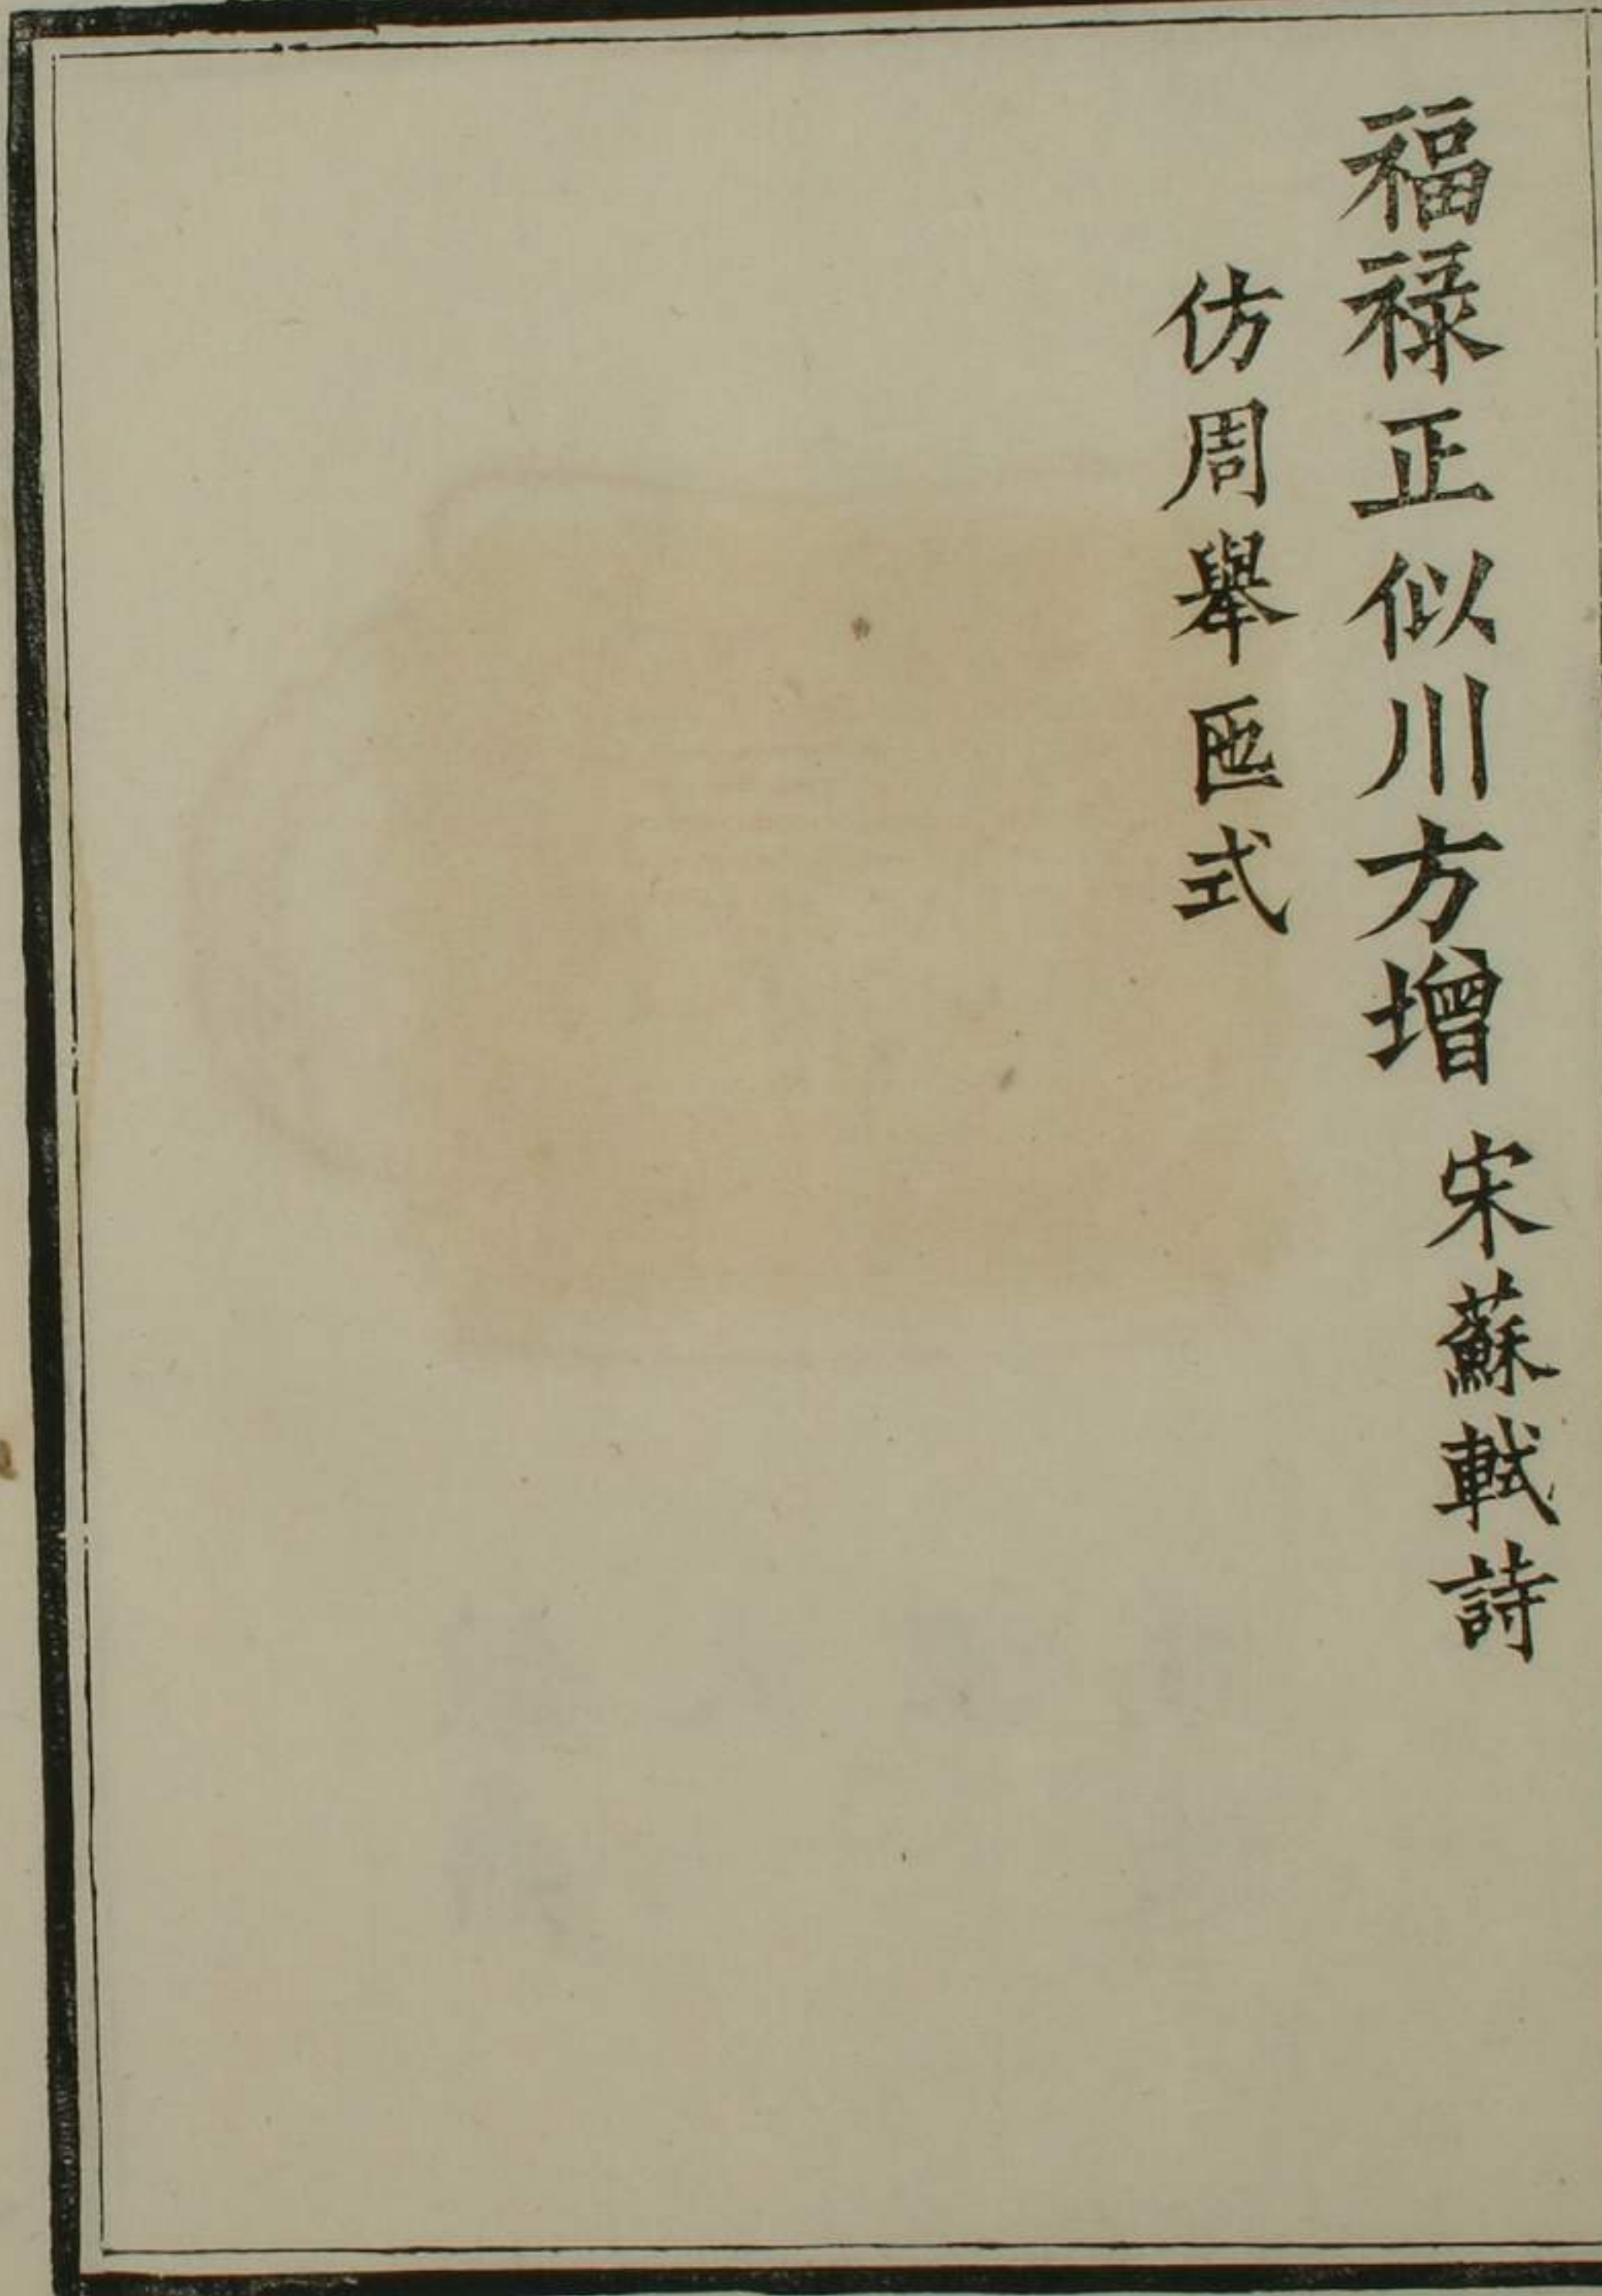 福祿正似川方增 宋蘇軾詩
仿周舉匜式